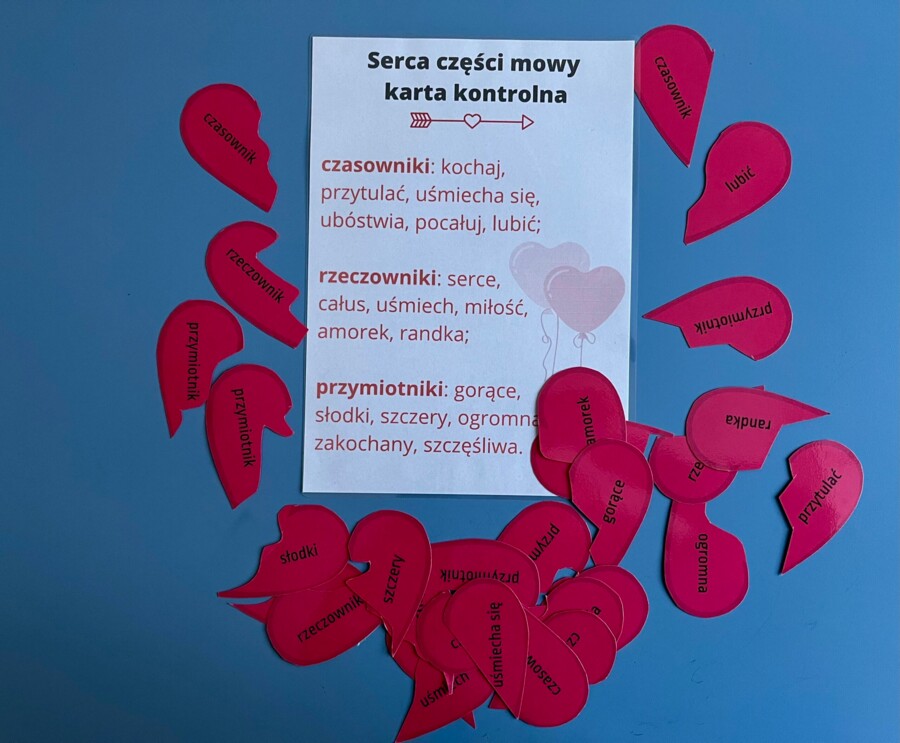 Serca części mowy
karta kontrolna
czasowniki: kochaj,
przytulać, uśmiecha się,
ubóstwia, pocałuj, lubić;
rzeczowniki: serce,
całus, uśmiech, miłość,
amorek, randka;
przymiotniki: gorące,
słodki, szczery, ogromna
zakochany, szczęśliwa.
czasownik
czasownik
lubić
rzeczownik
przymiotnik
przymiotnik
przymiotnik
amorek
randka
gorące
przytulać
ogromna
słodki
szczery
rzeczownik
przymiotnik
uśmiecha się
uśmiech